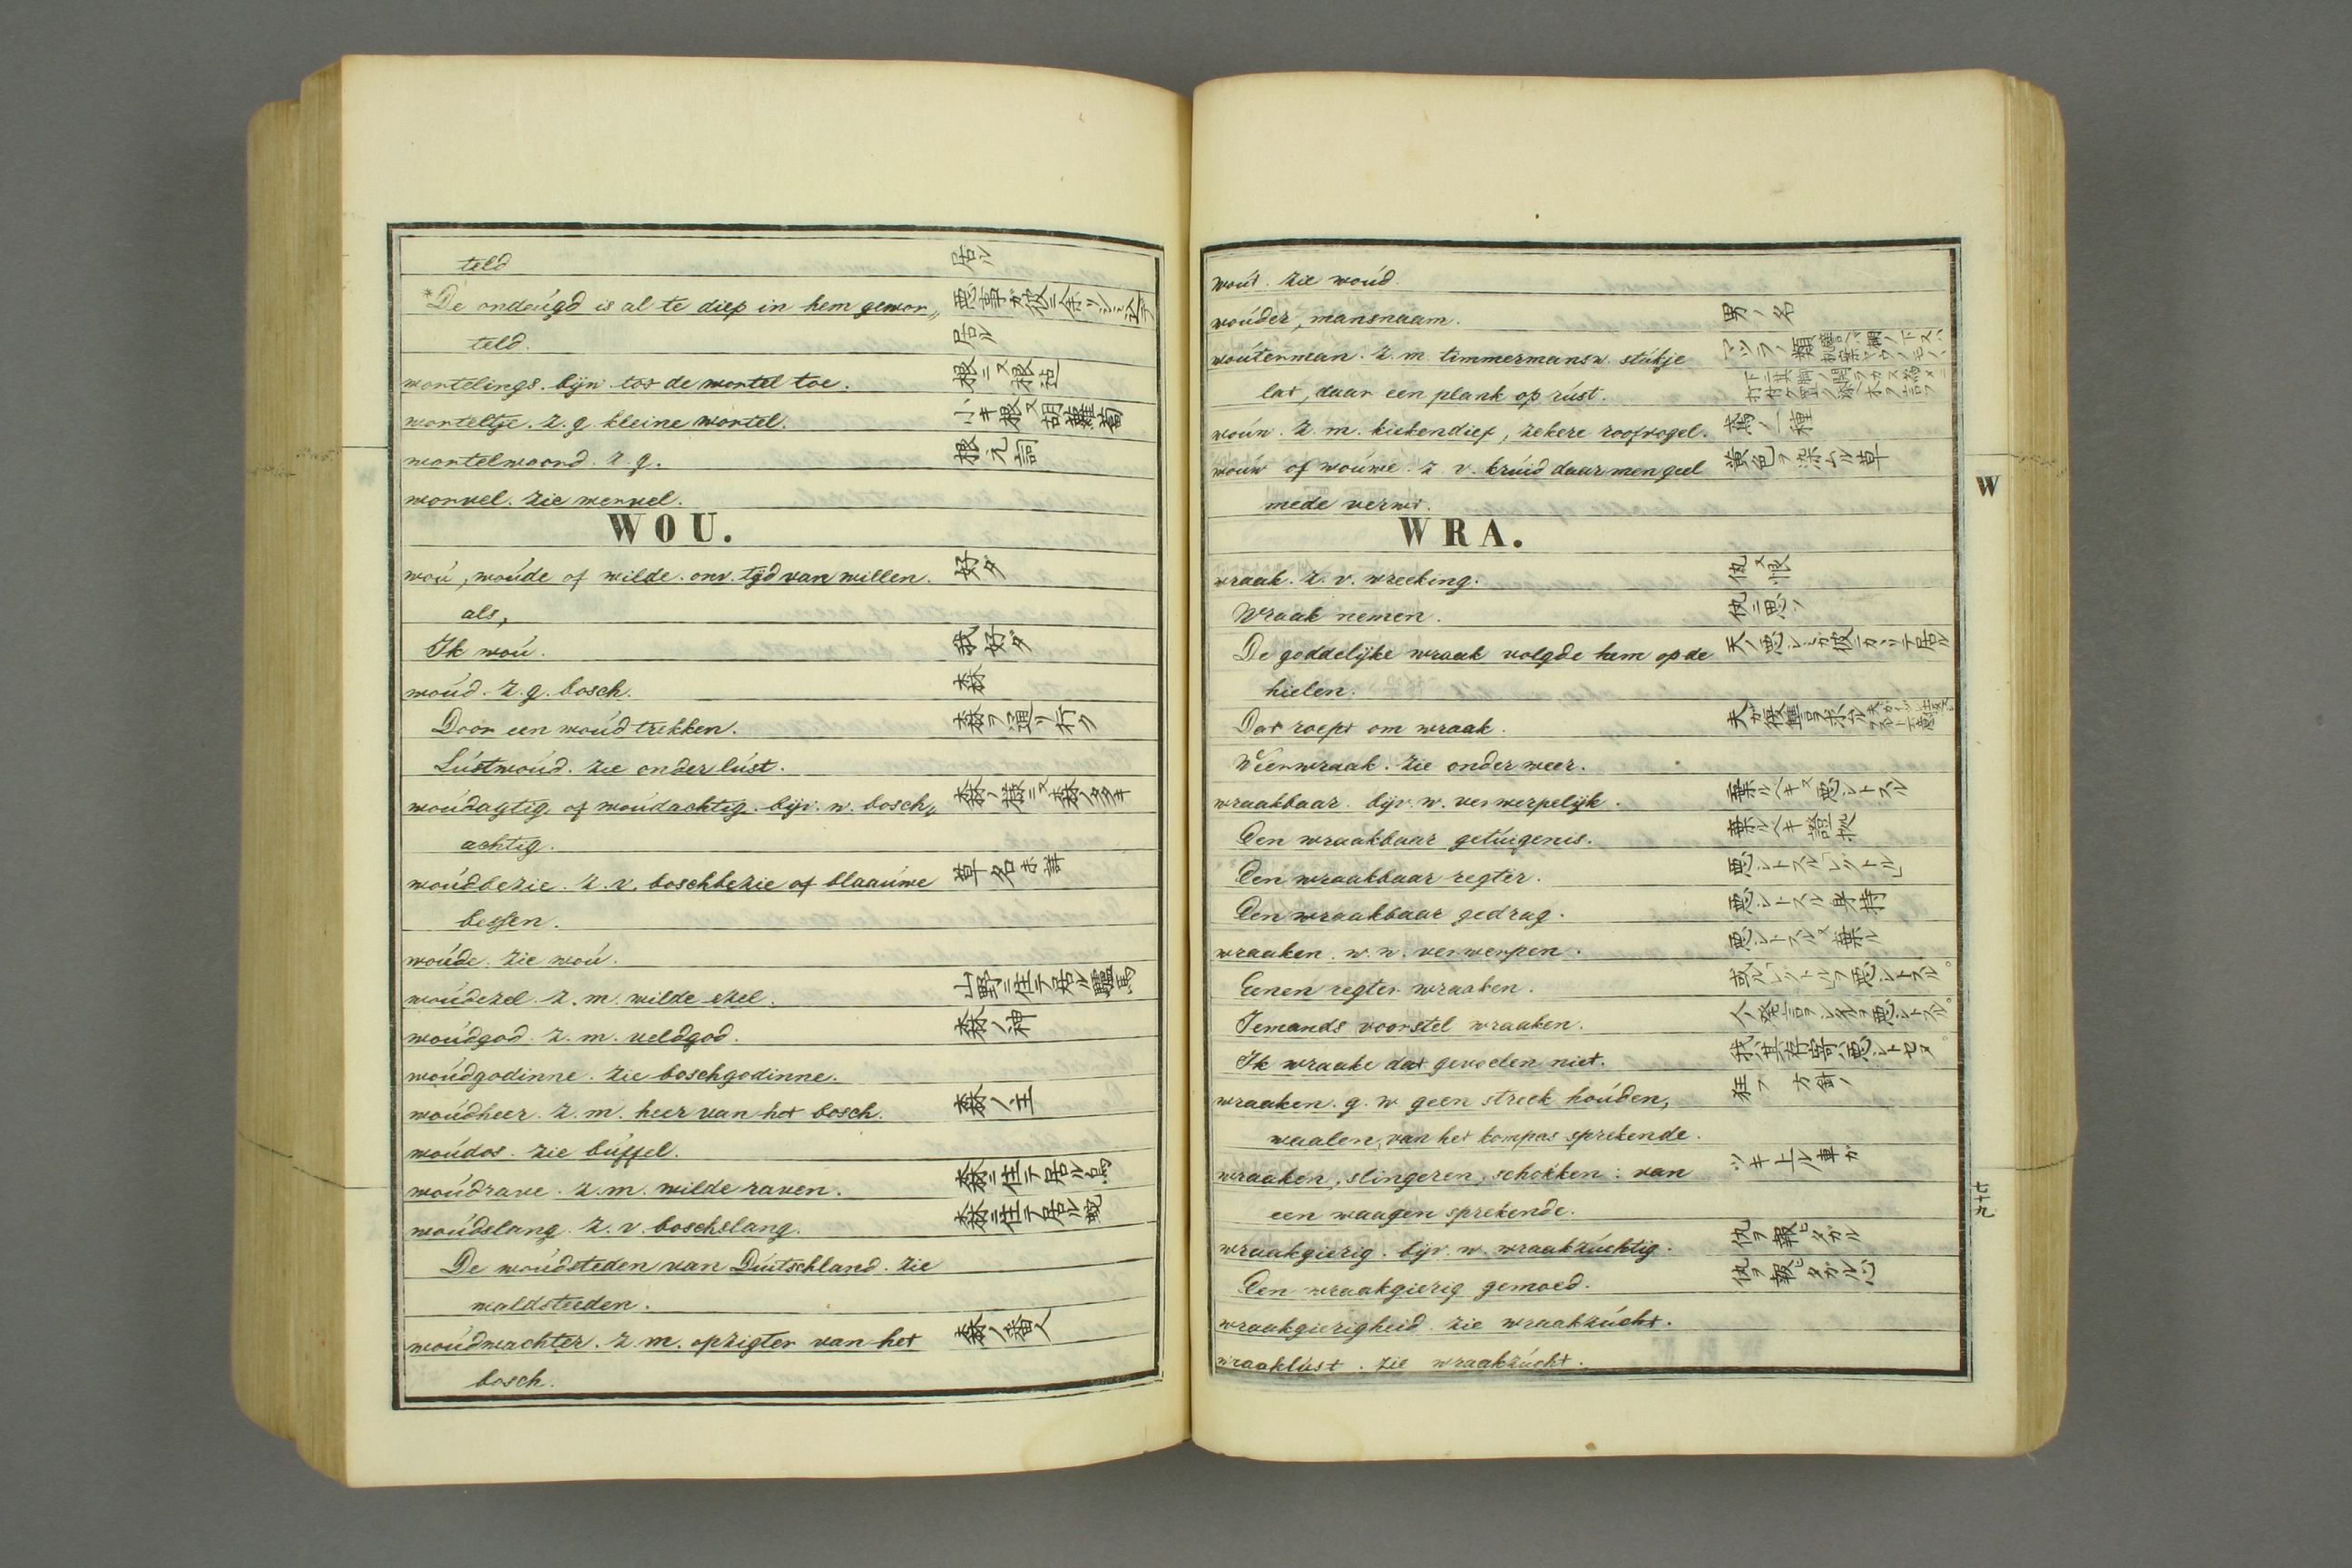 teld 居ル
*De ondeúgd is al te diep in hem gewor„
teld. 居ル
wortelings. bijw. tot de wortel toe.
worteltje. z. g. kleine wortel. 小キ根又胡蘿蔔
wortelwoord. z. g.
worvel. zie wervel.
WOU.
woú, woúde of wilde. onv. tijd van willen. 好タ
als,
Ik woú. 我好タ
woúd. z. g. bosch. 森
Door een woúd trekken. 森ヲ通リ行ク
Lústwoúd. zie onder lúst.
woúdagtig of woúdachtig. bijv. w. bosch„ 森ノ様ニ又森ノ多キ
achtig.
woúdbezie. z. v. boschbezie of blaaúwe 草名未詳
bessen.
woúde. zie woú.
woúdezel. z. m. wilde ezel. 山野ニ住テ居ル驢馬
woúdgod. z. m. veldgod. 森ノ神
woúdgodinne. zie boschgodinne.
woúdheer. z. m. heer van het bosch. 森ノ主
woúdos. zie búffel.
woúdrave. z. m. wilde raven. 森ニ住テ居ル烏
woúdslang. z. v. boschslang. 森ニ住テ居ル蛇
De woúdsteden van Dúitschland. zie
waldsteeden.
woúdwachter. z. m. opzigter van het 森ノ番人
bosch.
woút. zie woúd.
woúder, mansnaam. 男ノ名
woúterman. z. m. timmermansw. stúkje
lat, daar een plank op rúst.
woúw. z. m. kiekendief, zekere roofvogel. 鳶ノ一種
woúw of woúwe. z. v. krúid daar men geel 黄色ヲ染ムル草
mede verwt.
WRA.
wraak. z. v. wreeking. 仇又恨
Wraak nemen.
De goddelijke wraak volgde hem op de
hielen.
Dat roept om wraak.
Weerwraak. zie onder weer.
wraakbaar. bijv. w. verwerpelijk. 棄ルベキ又悪シトスル
Een wraakbaar getúigenis. 棄ルベキ證拠
Een wraakbaar regter. 悪シトスル「レグトル」
Een wraakbaar gedrag. 悪シトスル身持
wraaken. w. w. verwerpen. 悪シトスル又棄ル
Eenen regter wraaken. 或ル「レグトル」ヲ悪シトスル。
Iemands voorstel wraaken.
Ik wraake dat gevoelen niet.
wraaken. g. w. geen streek hoúden,
waalen, van het kompas sprekende.
wraaken, slingeren, schokken: van
een waagen sprekende.
wraakgierig. bijv. w. wraakzúchtig. 仇ヲ報ヒタガル
Een wraakgierig gemoed. 仇ヲ報ヒタガル心
wraakgierigheid. zie wraakzúcht.
wraaklúst. zie wraakzúcht.
W